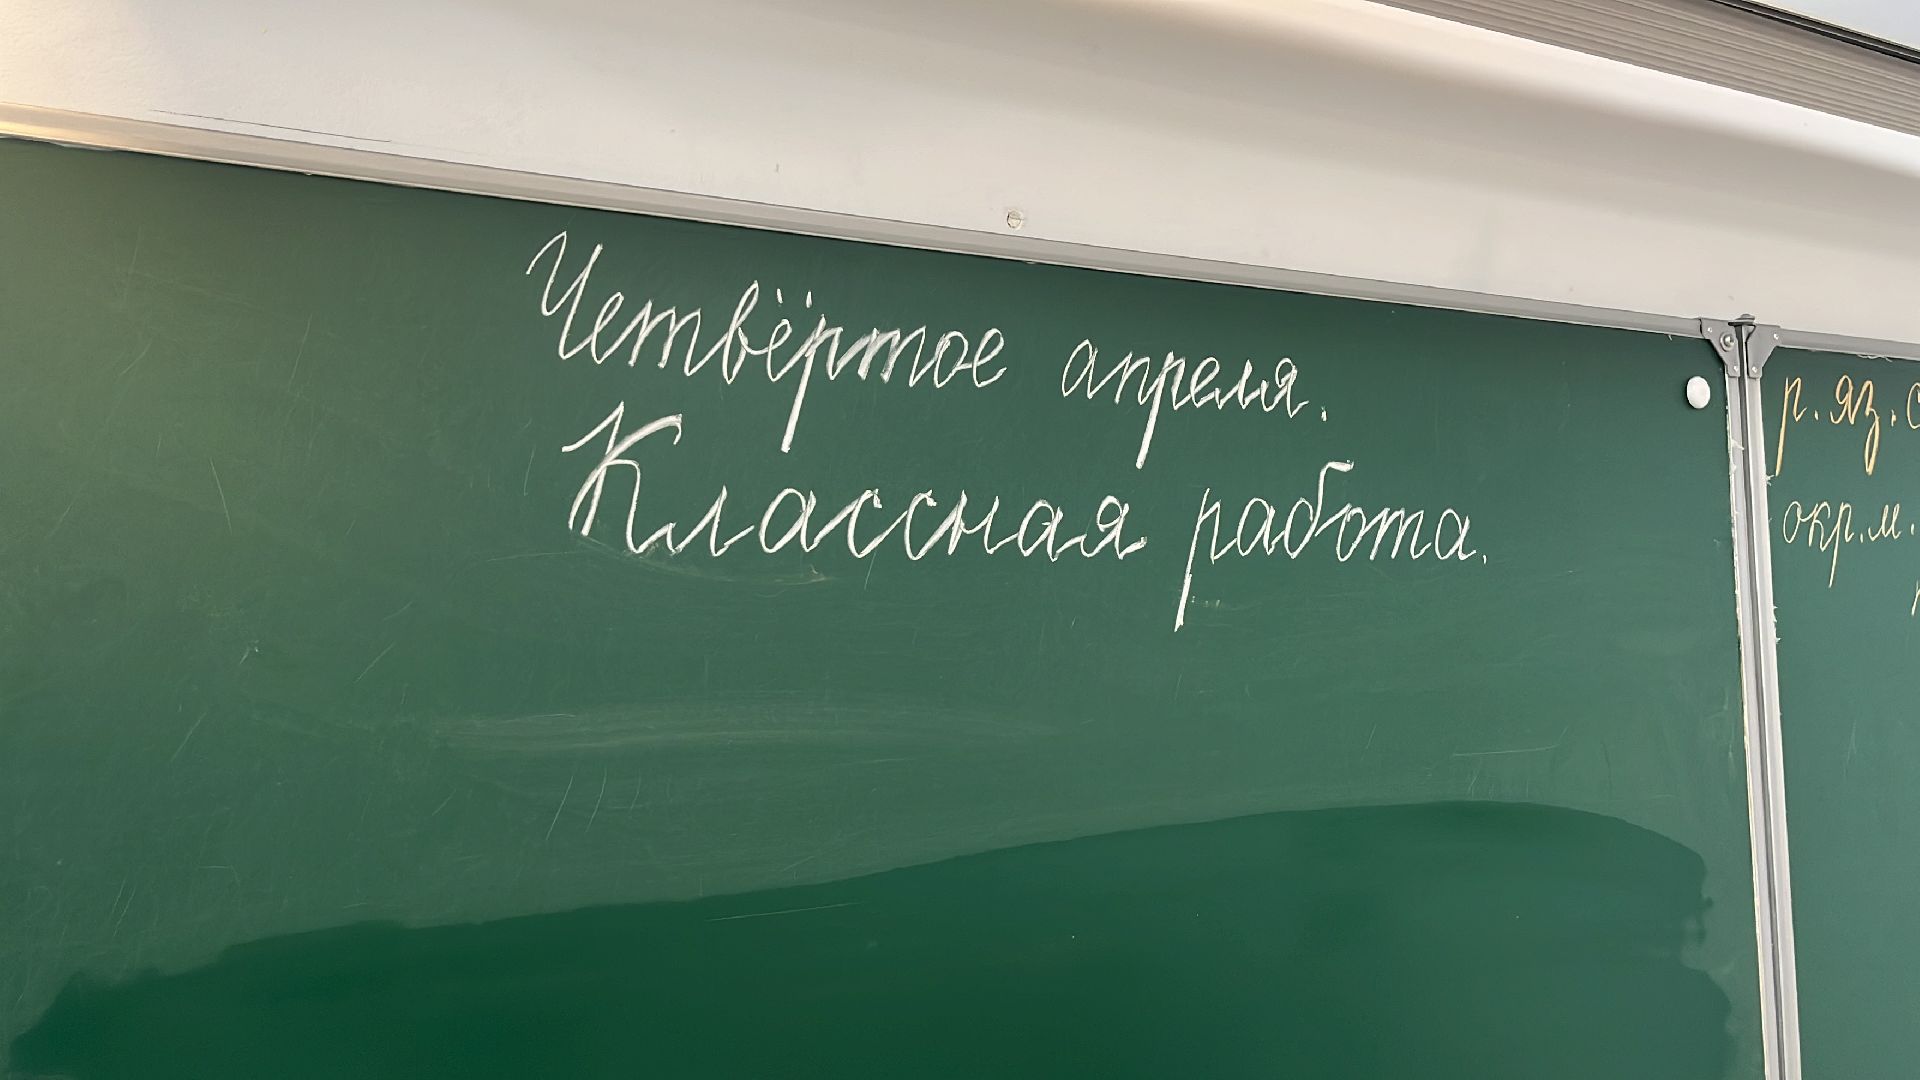 Четвёртое апреля.
Классная работа.
р. яз. с
окр. м.